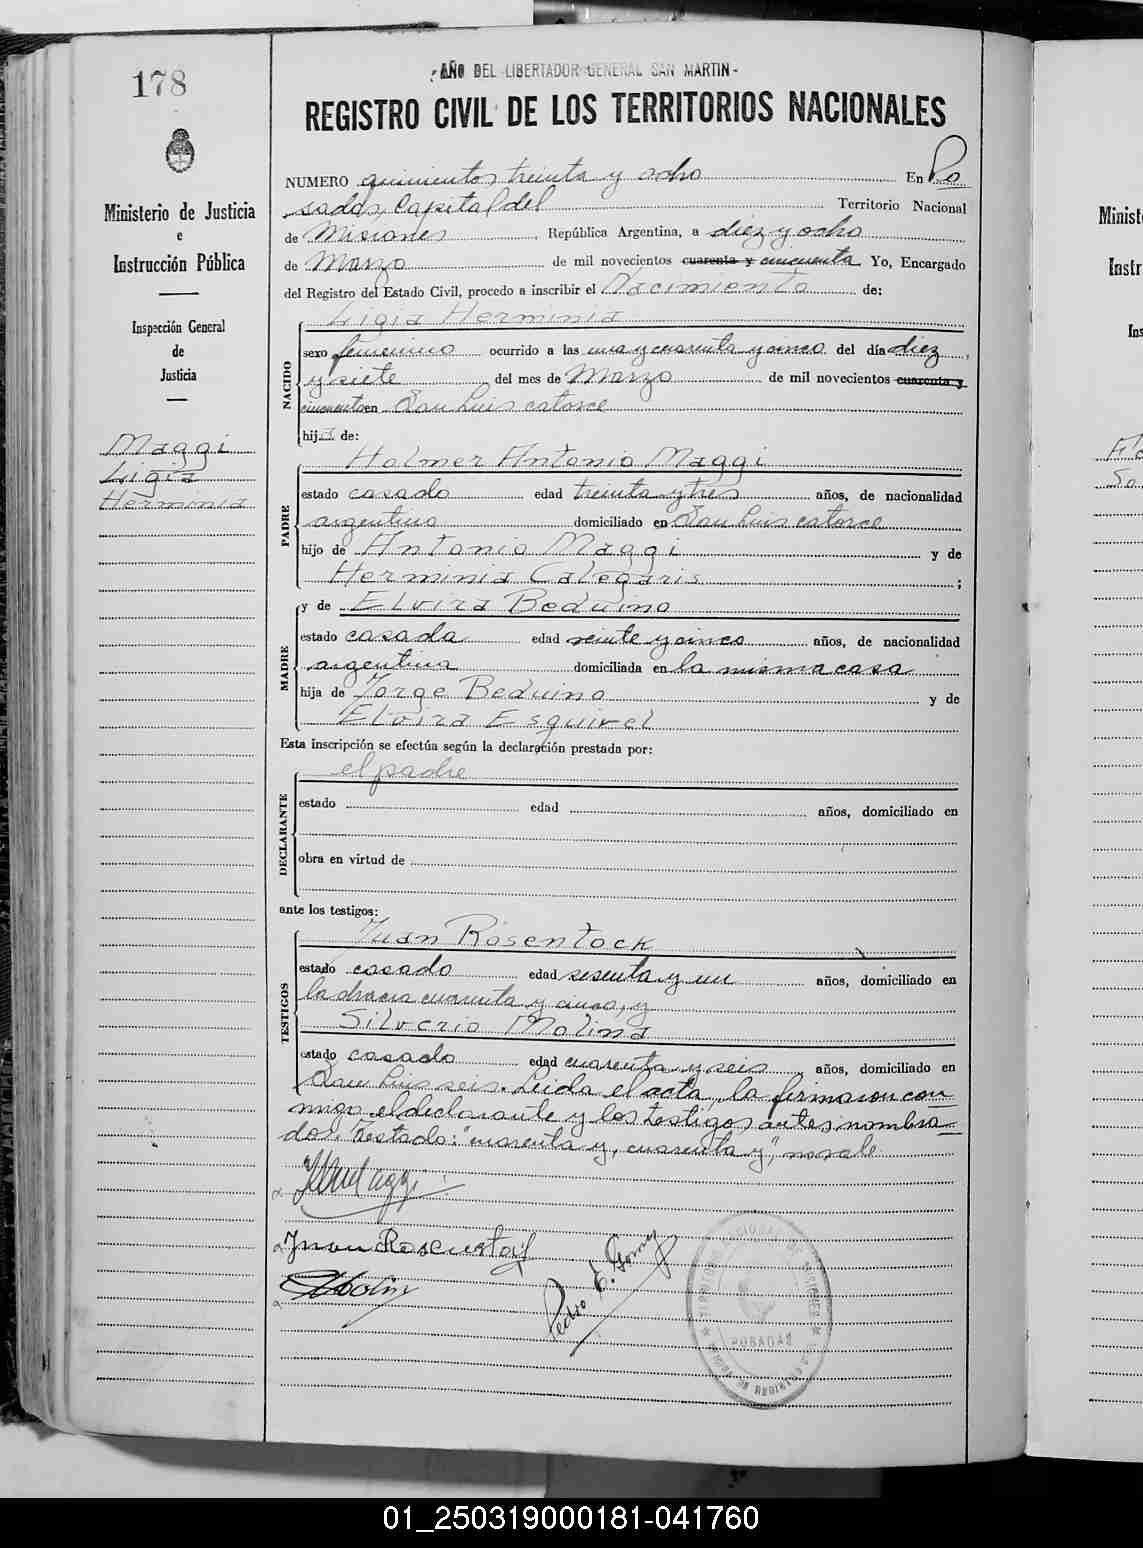 178
- AÑO DEL LIBERTADOR GENERAL SAN MARTIN -
REGISTRO CIVIL DE LOS TERRITORIOS NACIONALES
Ministerio de Justicia
e
Instrucción Pública
Inspección General
de
Justicia
Maggi
Ligia
Herminia
NUMERO quinientos treinta y ocho En Po
sadas, Capital del Territorio Nacional
de Misiones, República Argentina, a diez y ocho
de Marzo de mil novecientos cuarenta y cincuenta Yo, Encargado
del Registro del Estado Civil, procedo a inscribir el Nacimiento de:
NACIDO
Ligia Herminia
sexo femenino ocurrido a las una y cuarenta y cinco del día diez
y siete del mes de Marzo de mil novecientos cuarenta y
cincuenta en San Luis catorce
hija de:
PADRE
Holmer Antonio Maggi
estado casado edad treinta y tres años, de nacionalidad
argentino domiciliado en San Luis catorce
hijo de Antonio Maggi y de
Herminia Calegaris;
MADRE
y de Elvira Beduino
estado casada edad veinte y cinco años, de nacionalidad
argentina domiciliada en la misma casa
hija de Jorge Beduino y de
Elvira Esquivel
Esta inscripción se efectúa según la declaración prestada por:
DECLARANTE
el padre
estado edad años, domiciliado en
obra en virtud de
ante los testigos:
TESTIGOS
Juan Rosentock
estado casado edad sesenta y un años, domiciliado en
cuarenta y cinco, y
Silverio Molina
estado casado edad cuarenta y seis años, domiciliado en
San Luis seis. Leida el acta, la firmaron con
migo el declarante y los testigos antes nombra
dos. Testado: "cuarenta y, cuarenta y", no vale.
Pedro E. Gomez
POSADAS
Minist
Instr
Ins
01_250319000181-041760